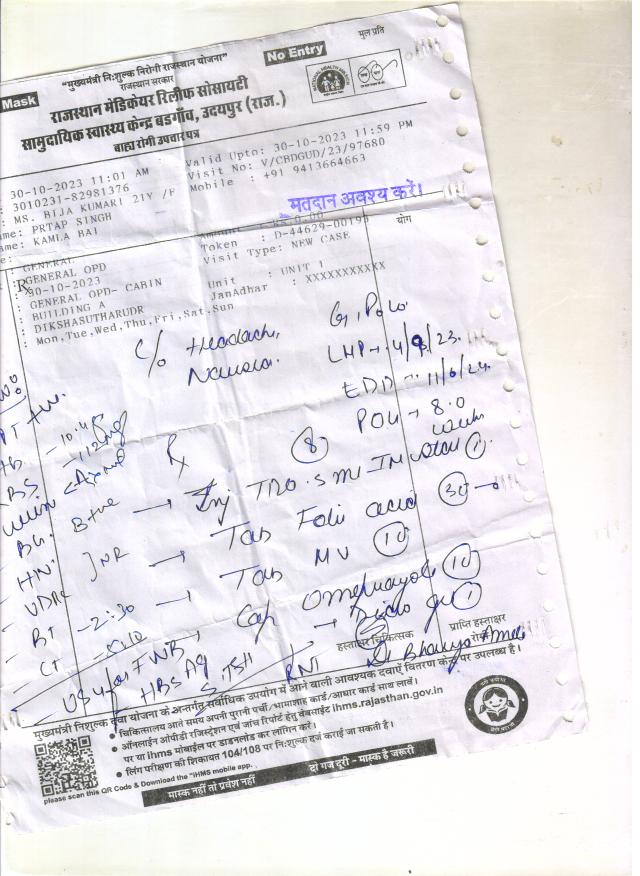 मूल प्रति
No Entry
"मुख्यमंत्री नि:शुल्क निरोगी राजस्थान योजना"
राजस्थान सरकार
Mask
राजस्थान मेडिकेयर रिलीफ सोसायटी
सामुदायिक स्वास्थ्य केन्द्र बडगाँव, उदयपुर (राज.)
बाह्य रोगी उपचार पत्र
30-10-2023 11:01 AM Valid Upto: 30-10-2023 11:59 PM
: 3010231-82981376 Visit No: V/CBDGUD/23/97680
: MS. BIJA KUMARI 21Y /F Mobile : +91 9413664663
ame: PRTAP SINGH
ame: KAMLA BAI
मतदान अवश्य करें।
योग
: GENERAL Amount : Rs 0.00
: GENERAL OPD Token : D-44629-0019
: 30-10-2023 Visit Type: NEW CASE
: GENERAL OPD- CABIN
BUILDING A Unit : UNIT 1
: DIKSHASUTHARUDR JanAdhar : XXXXXXXXXXX
: Mon,Tue,Wed,Thu,Fri,Sat,Sun
C/o Headache, Nausea.
LMP → 4/9/23.
EDD → 11/6/24.
POG → 8.0 weeks
Rx
→ Inj TT 0.5 ml IM stat 1
→ Tab Folic acid 30
→ Tab MV 10
Cap Omeprazole 10
BT - 2:30
CT
VDRL
USG for FWB
HBS Ag
S. TSH
हस्ताक्षर चिकित्सक
प्राप्ति हस्ताक्षर
मुख्यमंत्री निशुल्क दवा योजना के अन्तर्गत सर्वाधिक उपयोग में आने वाली आवश्यक दवाएँ वितरण केन्द्र पर उपलब्ध है।
• चिकित्सालय आते समय अपनी पुरानी पर्ची/भामाशाह कार्ड/आधार कार्ड साथ लावें।
• ऑनलाईन ओपीडी रजिस्ट्रेशन एवं जांच रिपोर्ट हेतु वेबसाईट ihms.rajasthan.gov.in
पर या ihms मोबाईल पर डाउनलोड कर लॉगिन करें।
• लिंग परीक्षण की शिकायत 104/108 पर नि:शुल्क दर्ज कराई जा सकती है।
please scan this QR Code & Download the "iHMS mobile app.
मास्क नहीं तो प्रवेश नहीं
दो गज दूरी - मास्क है जरूरी